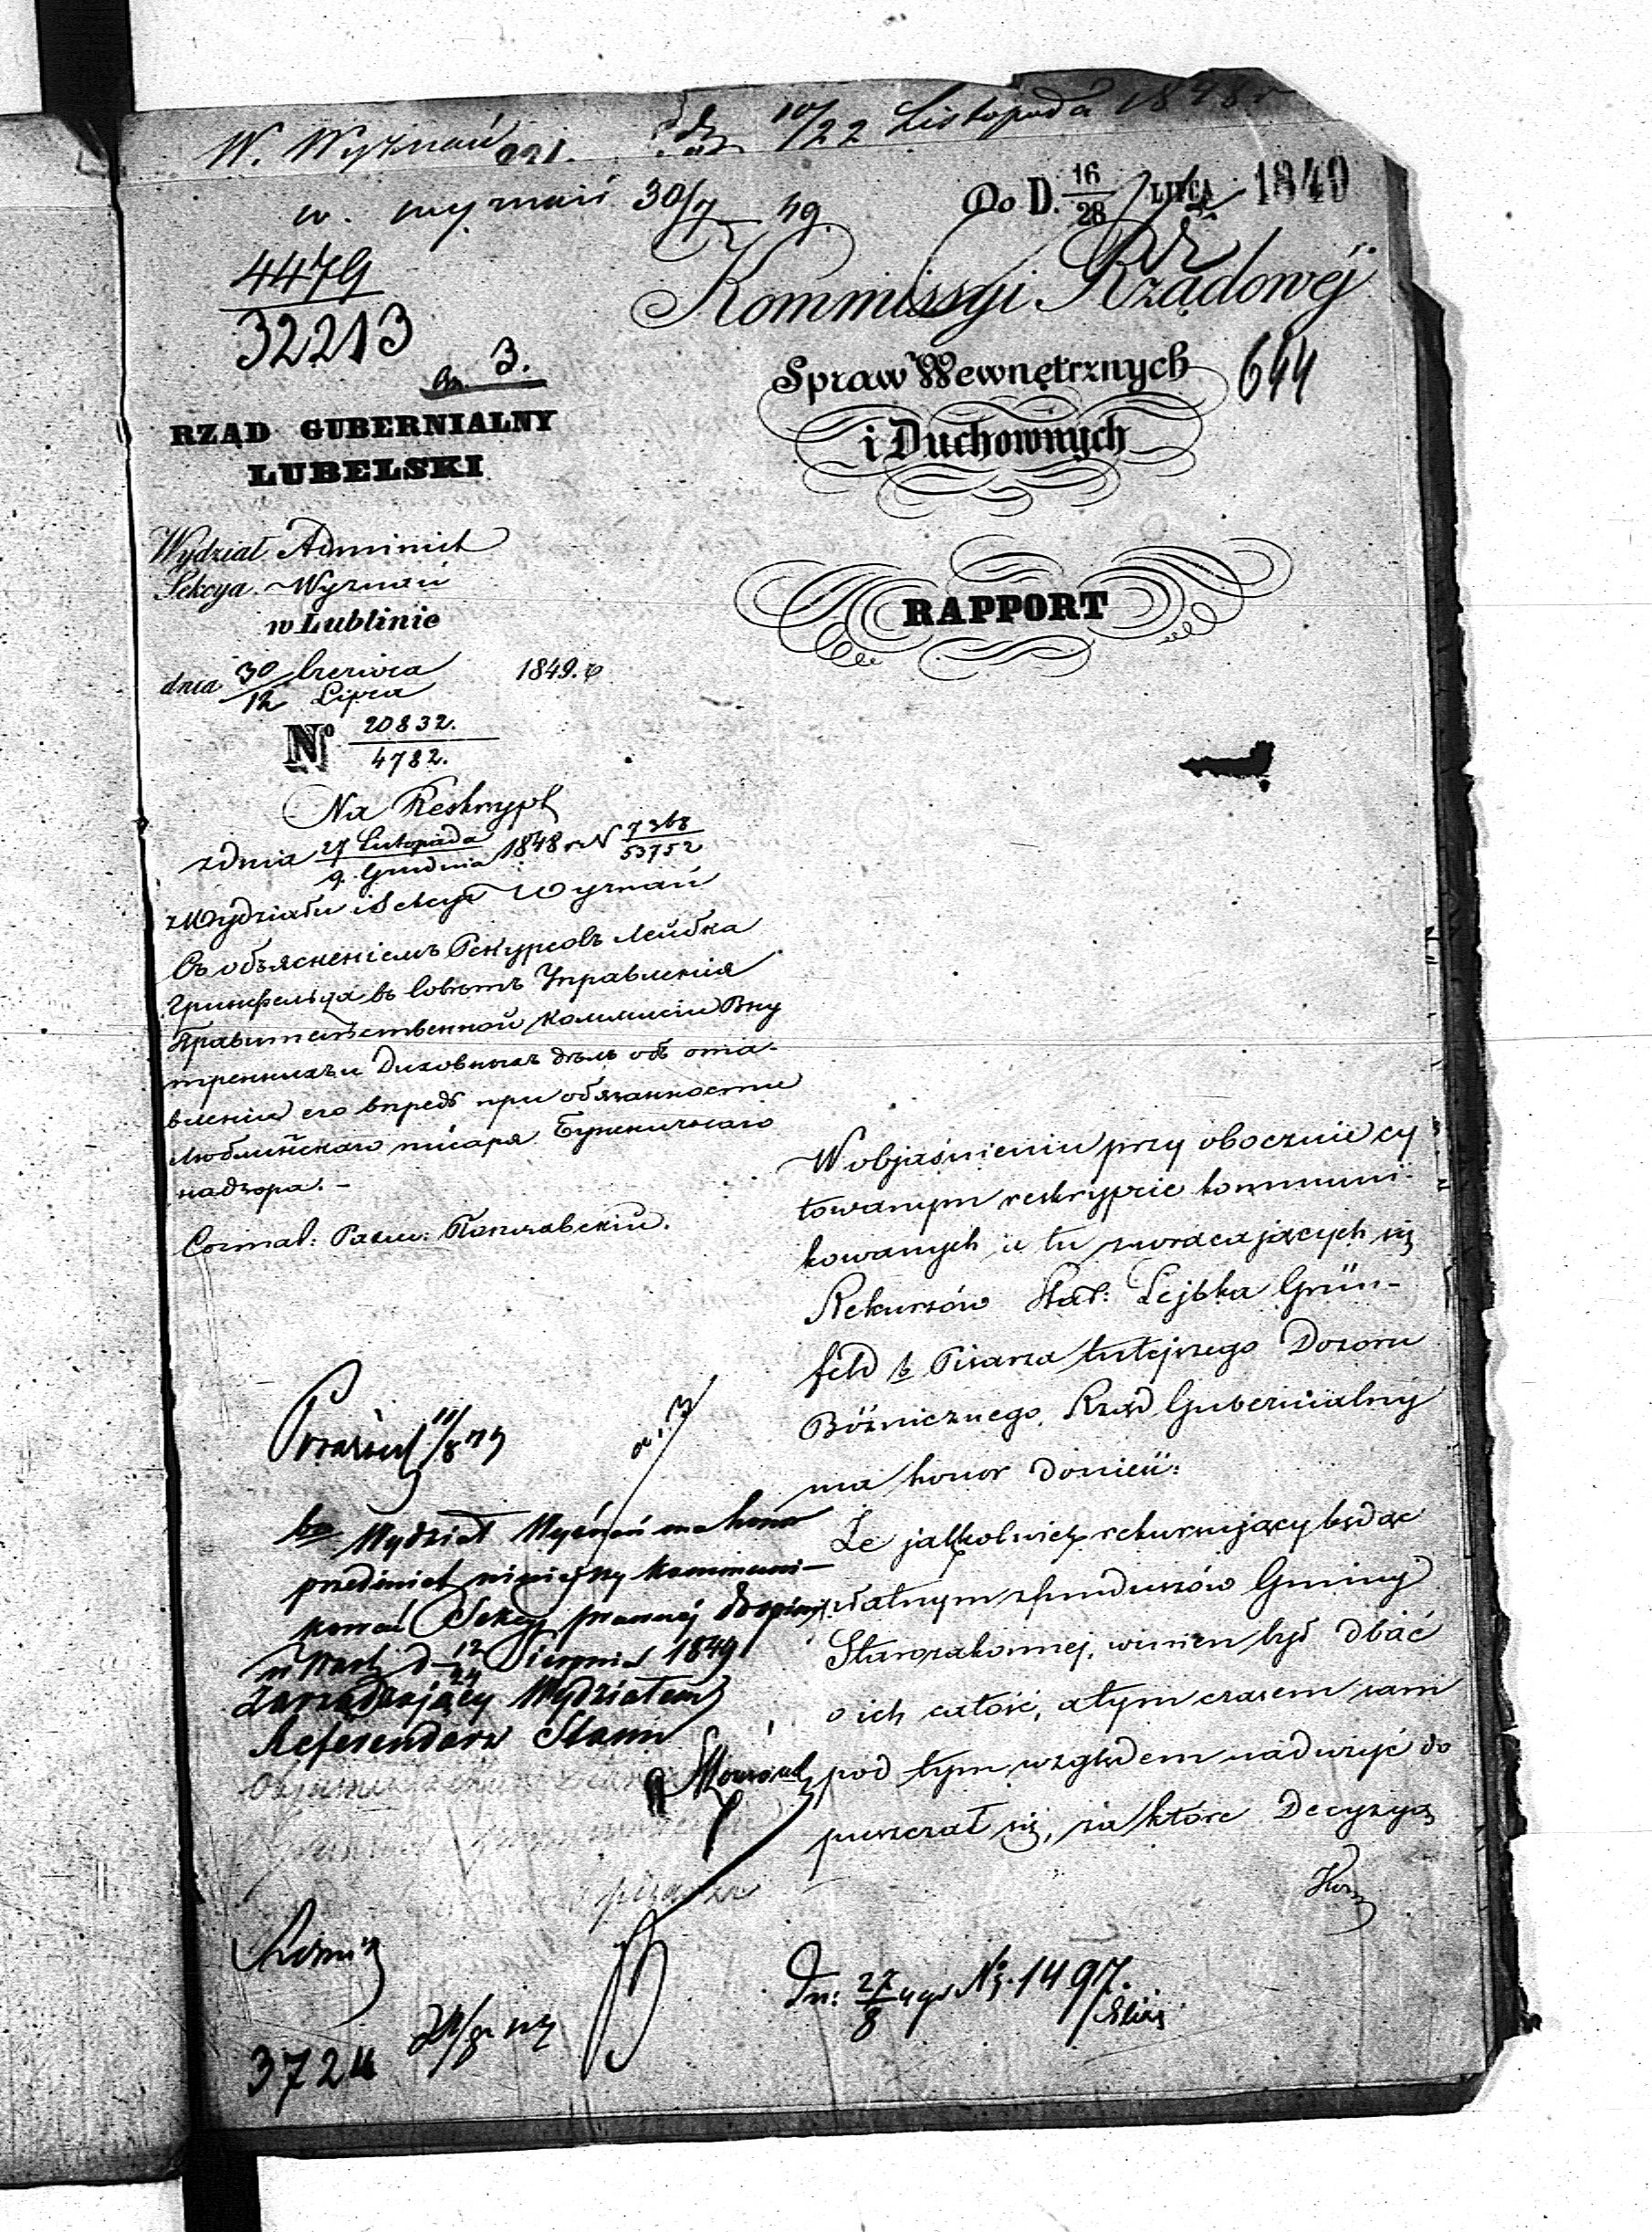 W. Wyznań 10/22 Listopada 1848 r
w. wyznań 30/7 49.
Do D. 16/28 LIPCA 1849
4479
32213
3.
Kommissyi Rządowéj
Spraw Wewnętrznych
644
i Duchownych
RZĄD GUBERNIALNY
LUBELSKI
RAPPORT
Wydział Administ
Sekcya Wyznań
w Lublinie
dnia 30 Czerwca / 12 Lipca 1849. r
Nº 20832. / 4782.
Na Reskrypt
z dnia 27 Listopada / 9. Grudnia 1848 r N 7368 / 53752
z Wydziału i Sekcyi Wyznań
Съ объясненіемъ Рекурсовъ Лейбка
Гринфельда въ Совѣтъ Управленія
Правительственной Коммисіи Вну
тренныхъ и Духовныхъ дѣлъ объ оста-
вленіи его впредь при обязанности
Люблинскаго писаря Бужничнаго
надзора. -
W objaśnieniu przy obocznie cy
towanym reskrypcie kommuni-
kowanych i tu zwracających się
Rekursów Star: Lejbka Grün-
feld b Pisarza tutejszego Dozoru
Bóżniczego, Rząd Gubernialny
ma honor donieść:
Że jakkolwiek rekurujący będąc
płatnym z funduszów Gminy
Starozakonnej, winien był dbać
o ich całość, a tym czasem sam
pod tym względem nadużyć do
puszczał się, za które Decyzyą
11/8 49
Wydział Wyznań ma honor
przedmiot niniejszy kommuni-
kować Sekcyi prawnej do opinji
w Warsz d 12/24 Sierpnia 1849
Zarządzający Wydziałem
Referendarz Stanu
Dn: 27/8 49 r Nº 1497.
3724